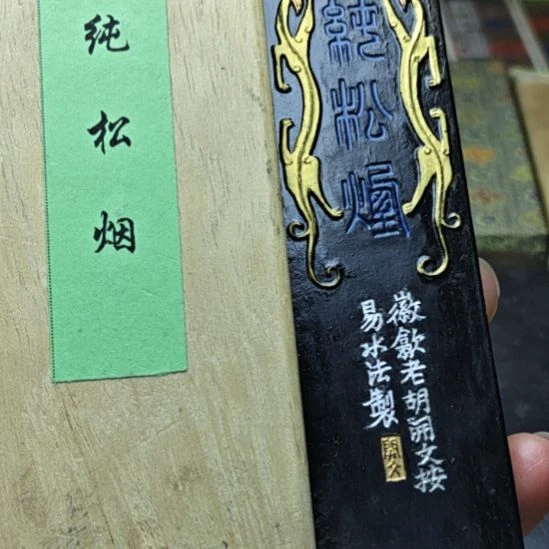 纯松烟
純松煙
徽歙老胡開文按
易水法製
開文